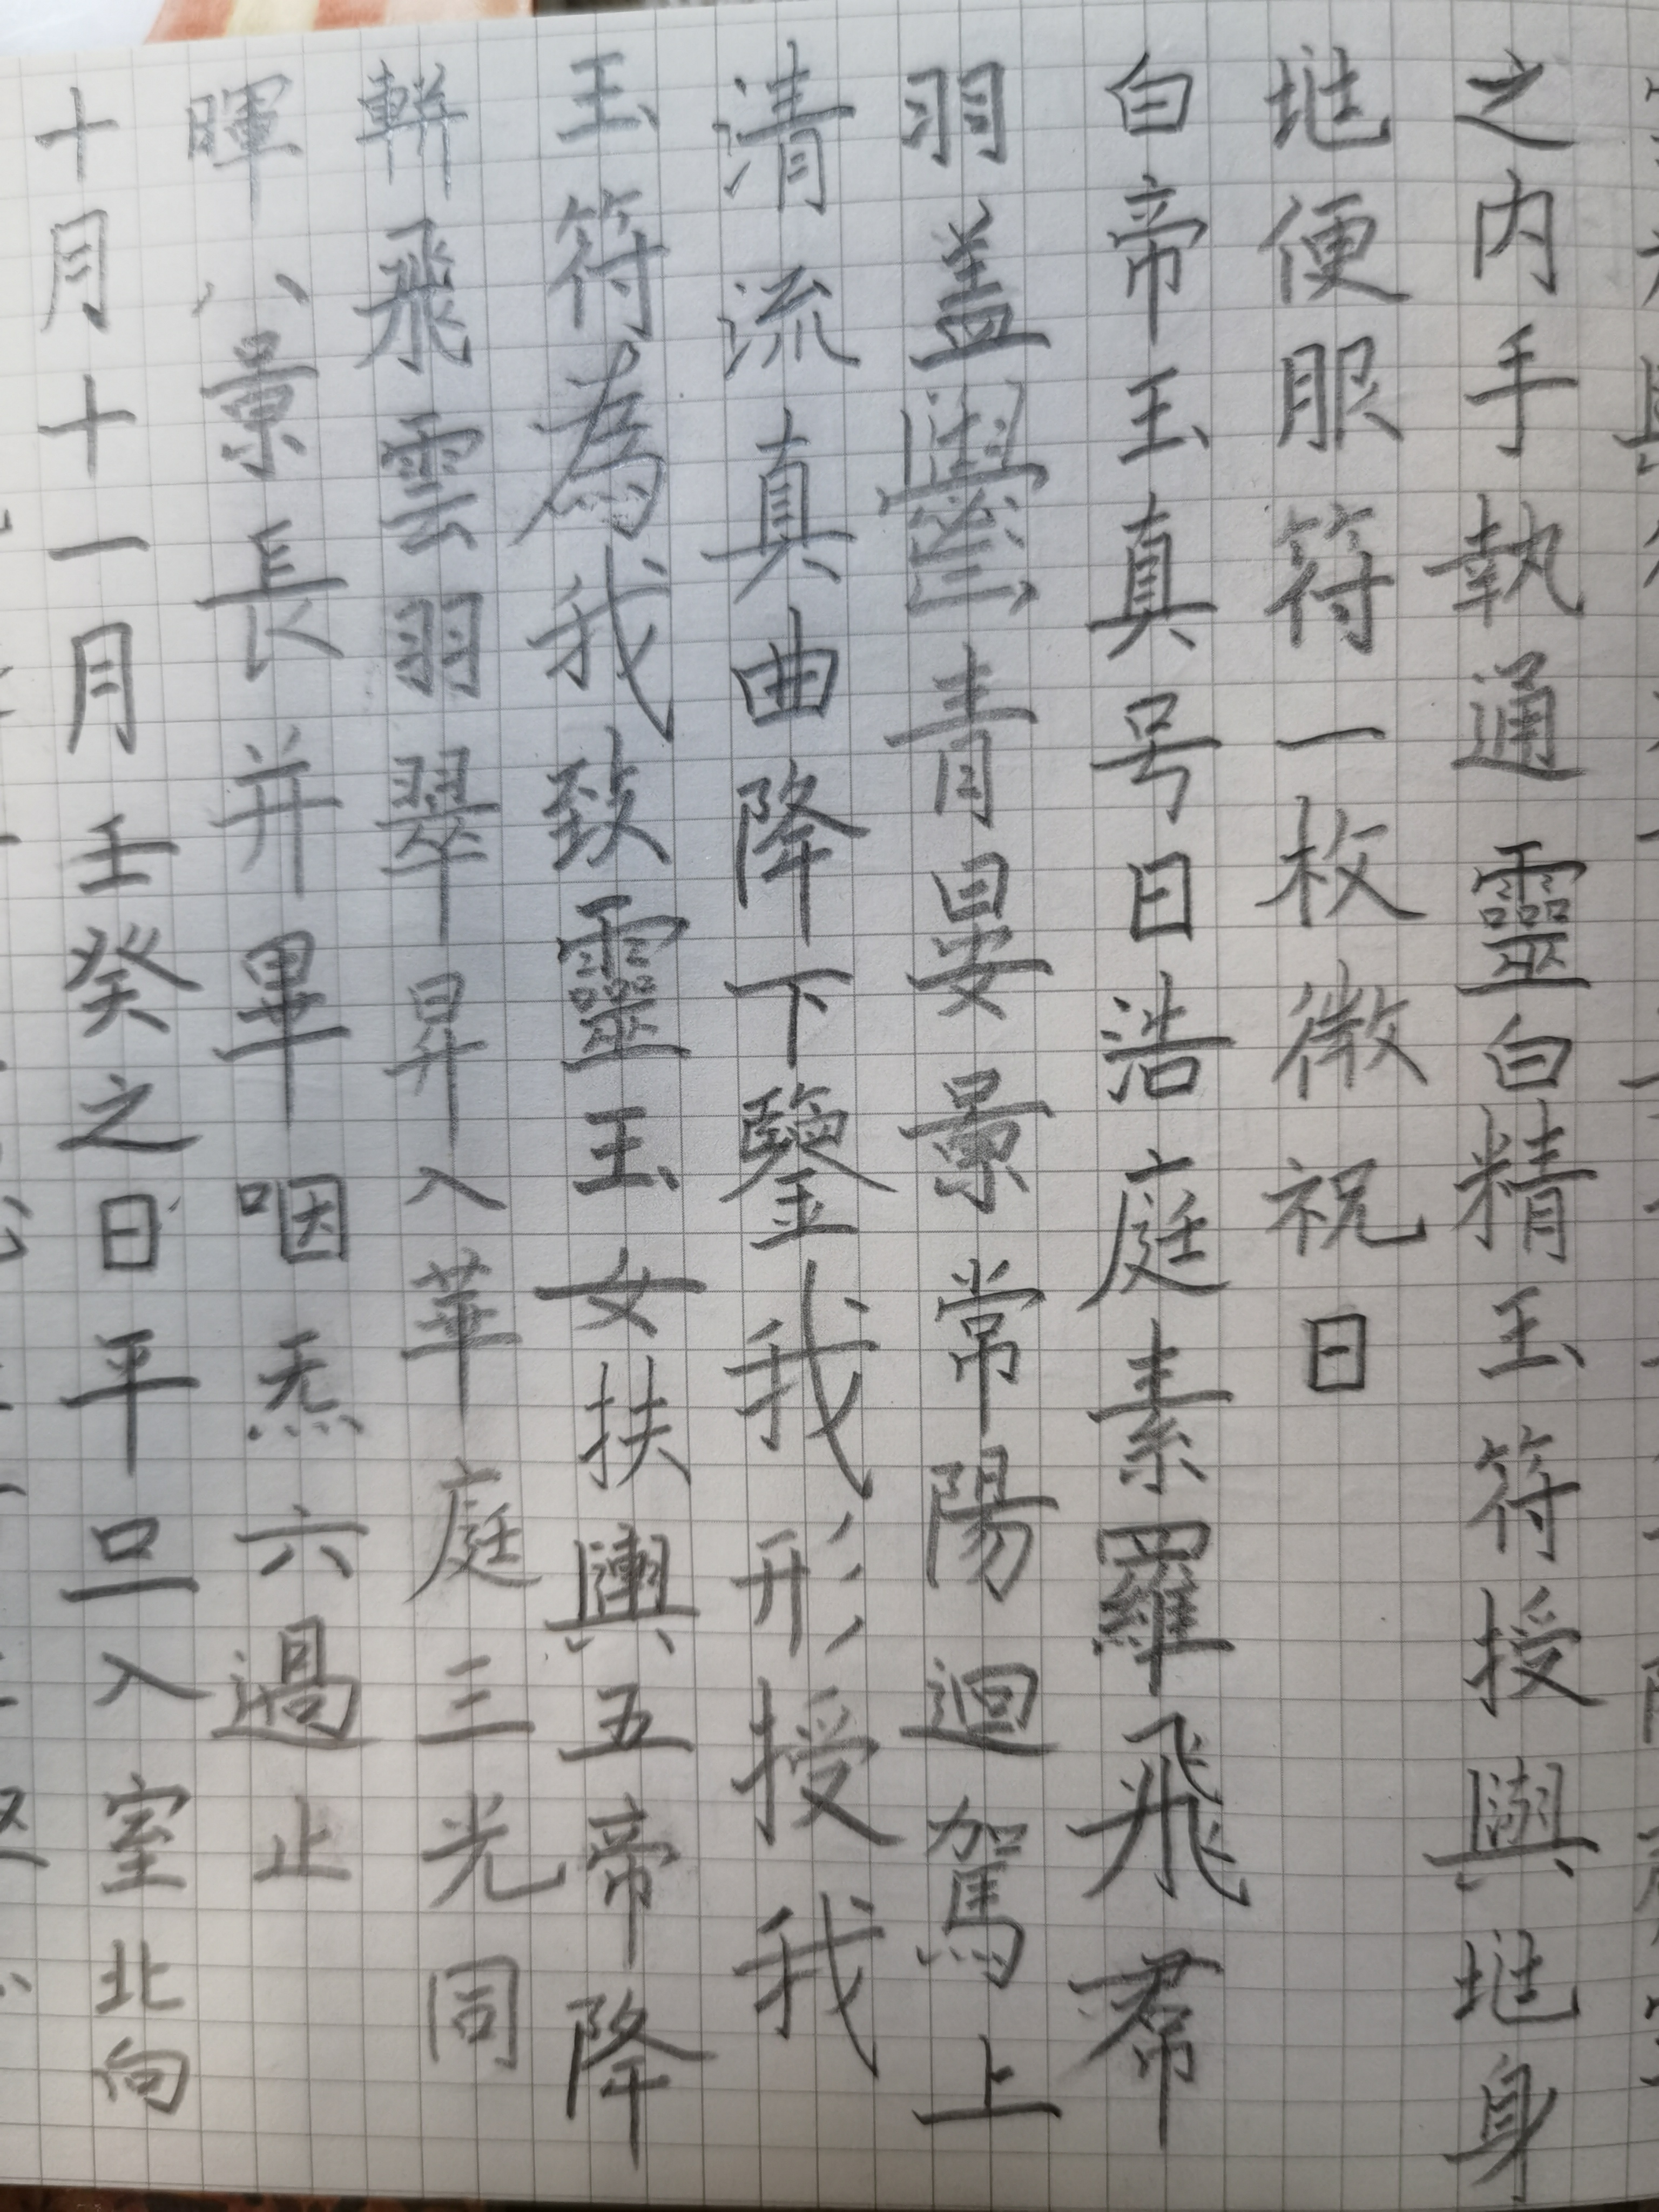 之内手執通靈白精玉符授與地身
地便服符一枚微祝曰
白帝玉真号曰浩庭素羅飛帬
羽盖鬱青晏景常陽迴駕上
清流真曲降下鑒我形授我
玉符為我致靈玉女扶輿五帝降
軿飛雲羽翠昇入華庭三光同
暉八景長并畢咽炁六過止
十月十一月壬癸之日平旦入室北向